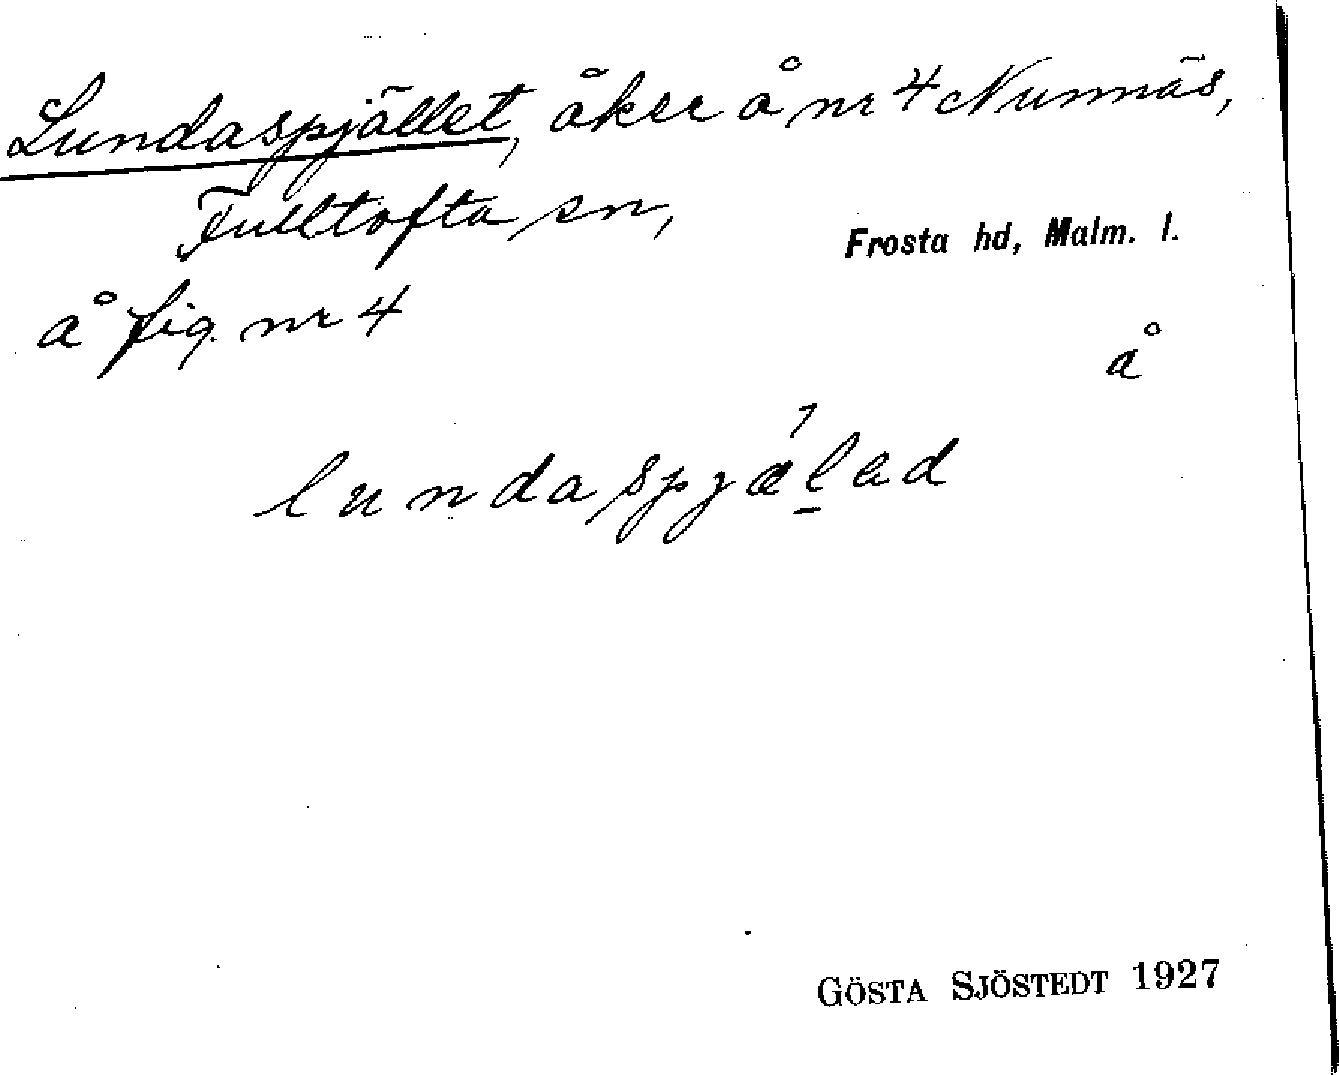 Lundaspjället, åker å nr 4 Nunnäs,
Fulltofta sn,
Frosta hd, Malm. l.
å fig. nr 4
å
lundaspjælad
GÖSTA SJÖSTEDT 1927